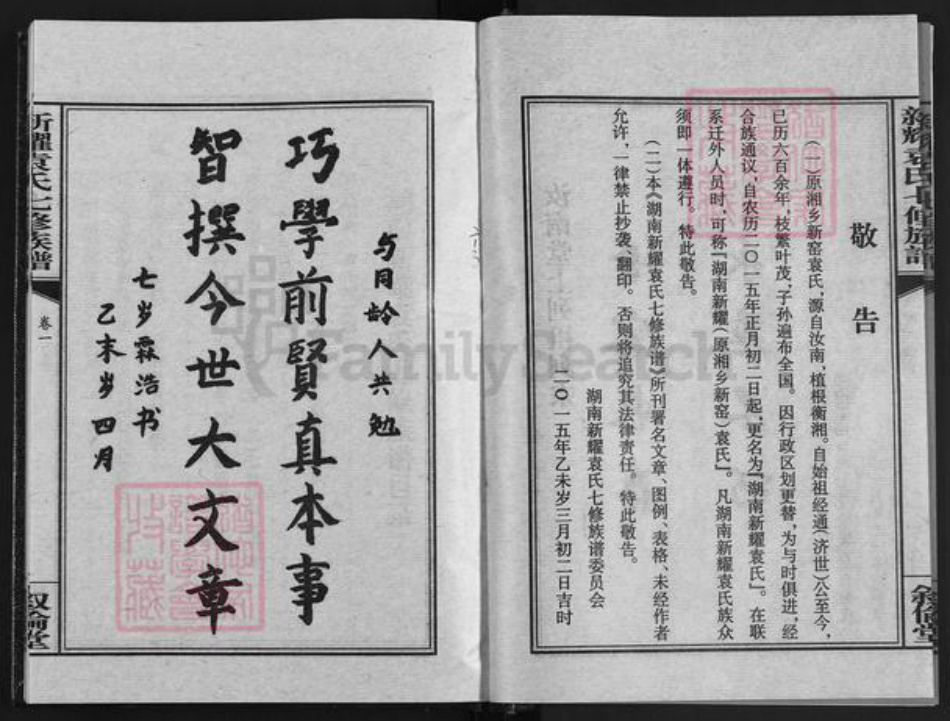 新耀袁氏七修族譜
敬告
(一)原湘乡新窑袁氏，源自汝南，植根衡湘。自始祖经通(济世)公至今，
已历六百余年，枝繁叶茂，子孙遍布全国。因行政区划更替，为与时俱进，经
合族通议，自农历二〇一五年正月初二日起，更名为『湖南新耀袁氏』。在联
系迁外人员时，可称『湖南新耀(原湘乡新窑)袁氏』。凡湖南新耀袁氏族众
须即一体遵行。特此敬告。
(二)本《湖南新耀袁氏七修族谱》所刊署名文章、图例、表格、未经作者
允许，一律禁止抄袭、翻印。否则将追究其法律责任。特此敬告。
湖南新耀袁氏七修族谱委员会
二〇一五年乙未岁三月初二日吉时
与同龄人共勉
巧學前賢真本事
智撰今世大文章
七岁霖浩书
乙未岁四月
新耀袁氏七修族譜
卷一
FamilySearch